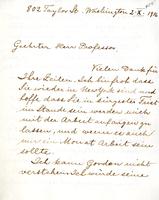 802 Taylor St. Washington 2-X-1916
Geehrter Herr Professor,
Vielen Dank für
Ihre Zeilen. Ich bin froh dass
Sie wieder in New York sind und
hoffe dass Sie in einziger Zeit
im Stande sein werden mich
mit der Arbeit anfangen zu
lassen, und wenn es auch
nur ein Monat Arbeit sein
sollte.
Ich kann Gordon nicht
verstehen. Ich würde seine